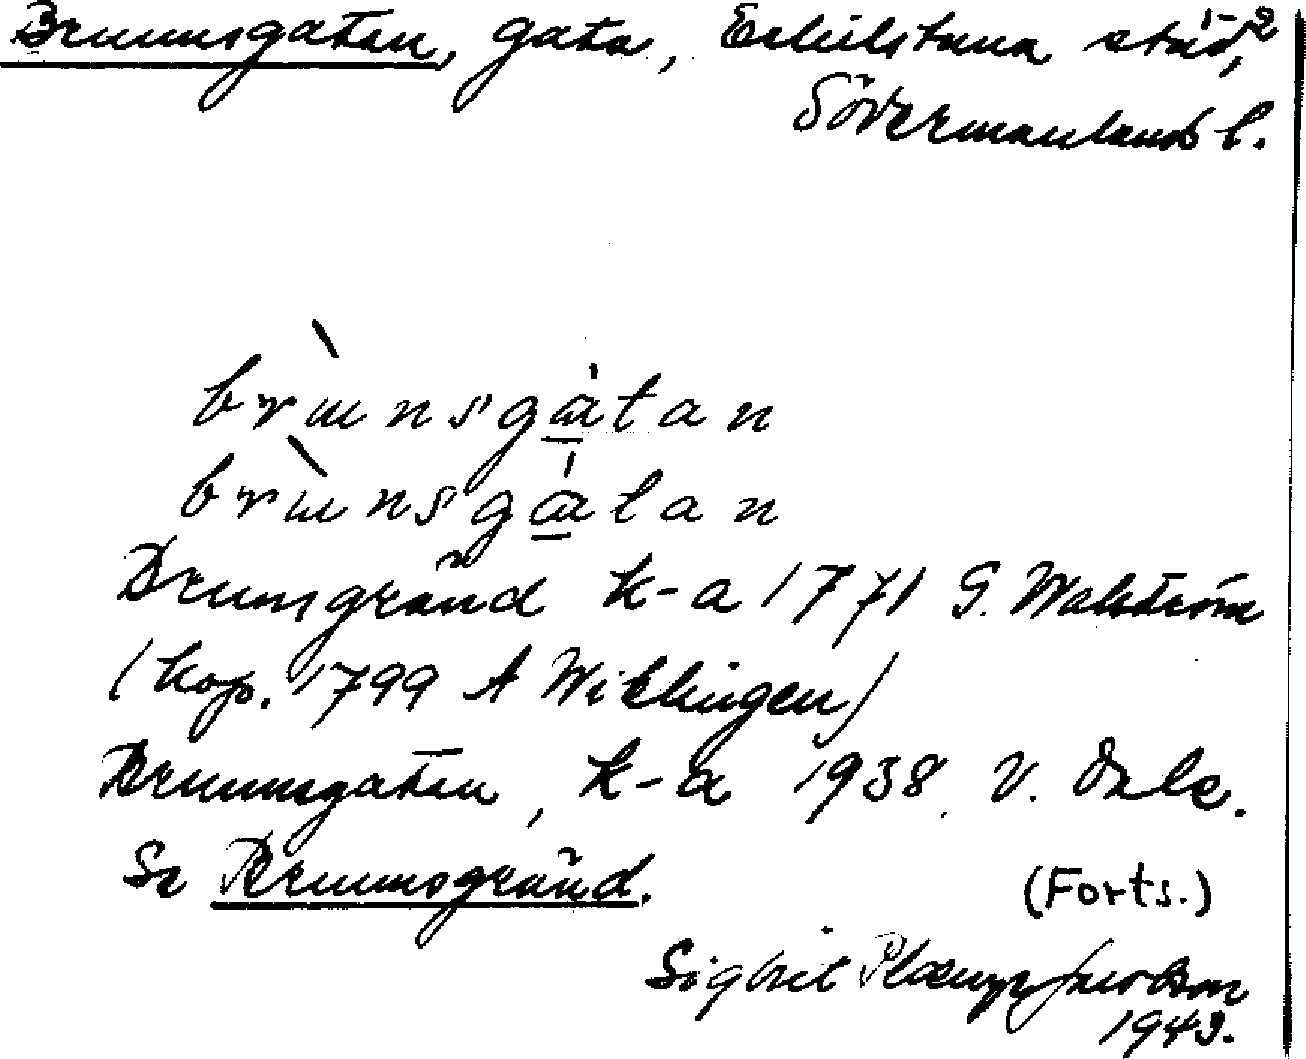 Brunnsgatan, gata, Eskilstuna stad,
Södermanlands l.
brɯnsgatan
brɯnsgatan
Brunsgränd k-a 1771 G. Wahlström
(kop. 1799 A Wiblingen)
Brunnsgatan, k-a 1938 V. Dale.
Se Brunnsgränd.
(Forts.)
Sigbrit Plænge Jacobson
1943.